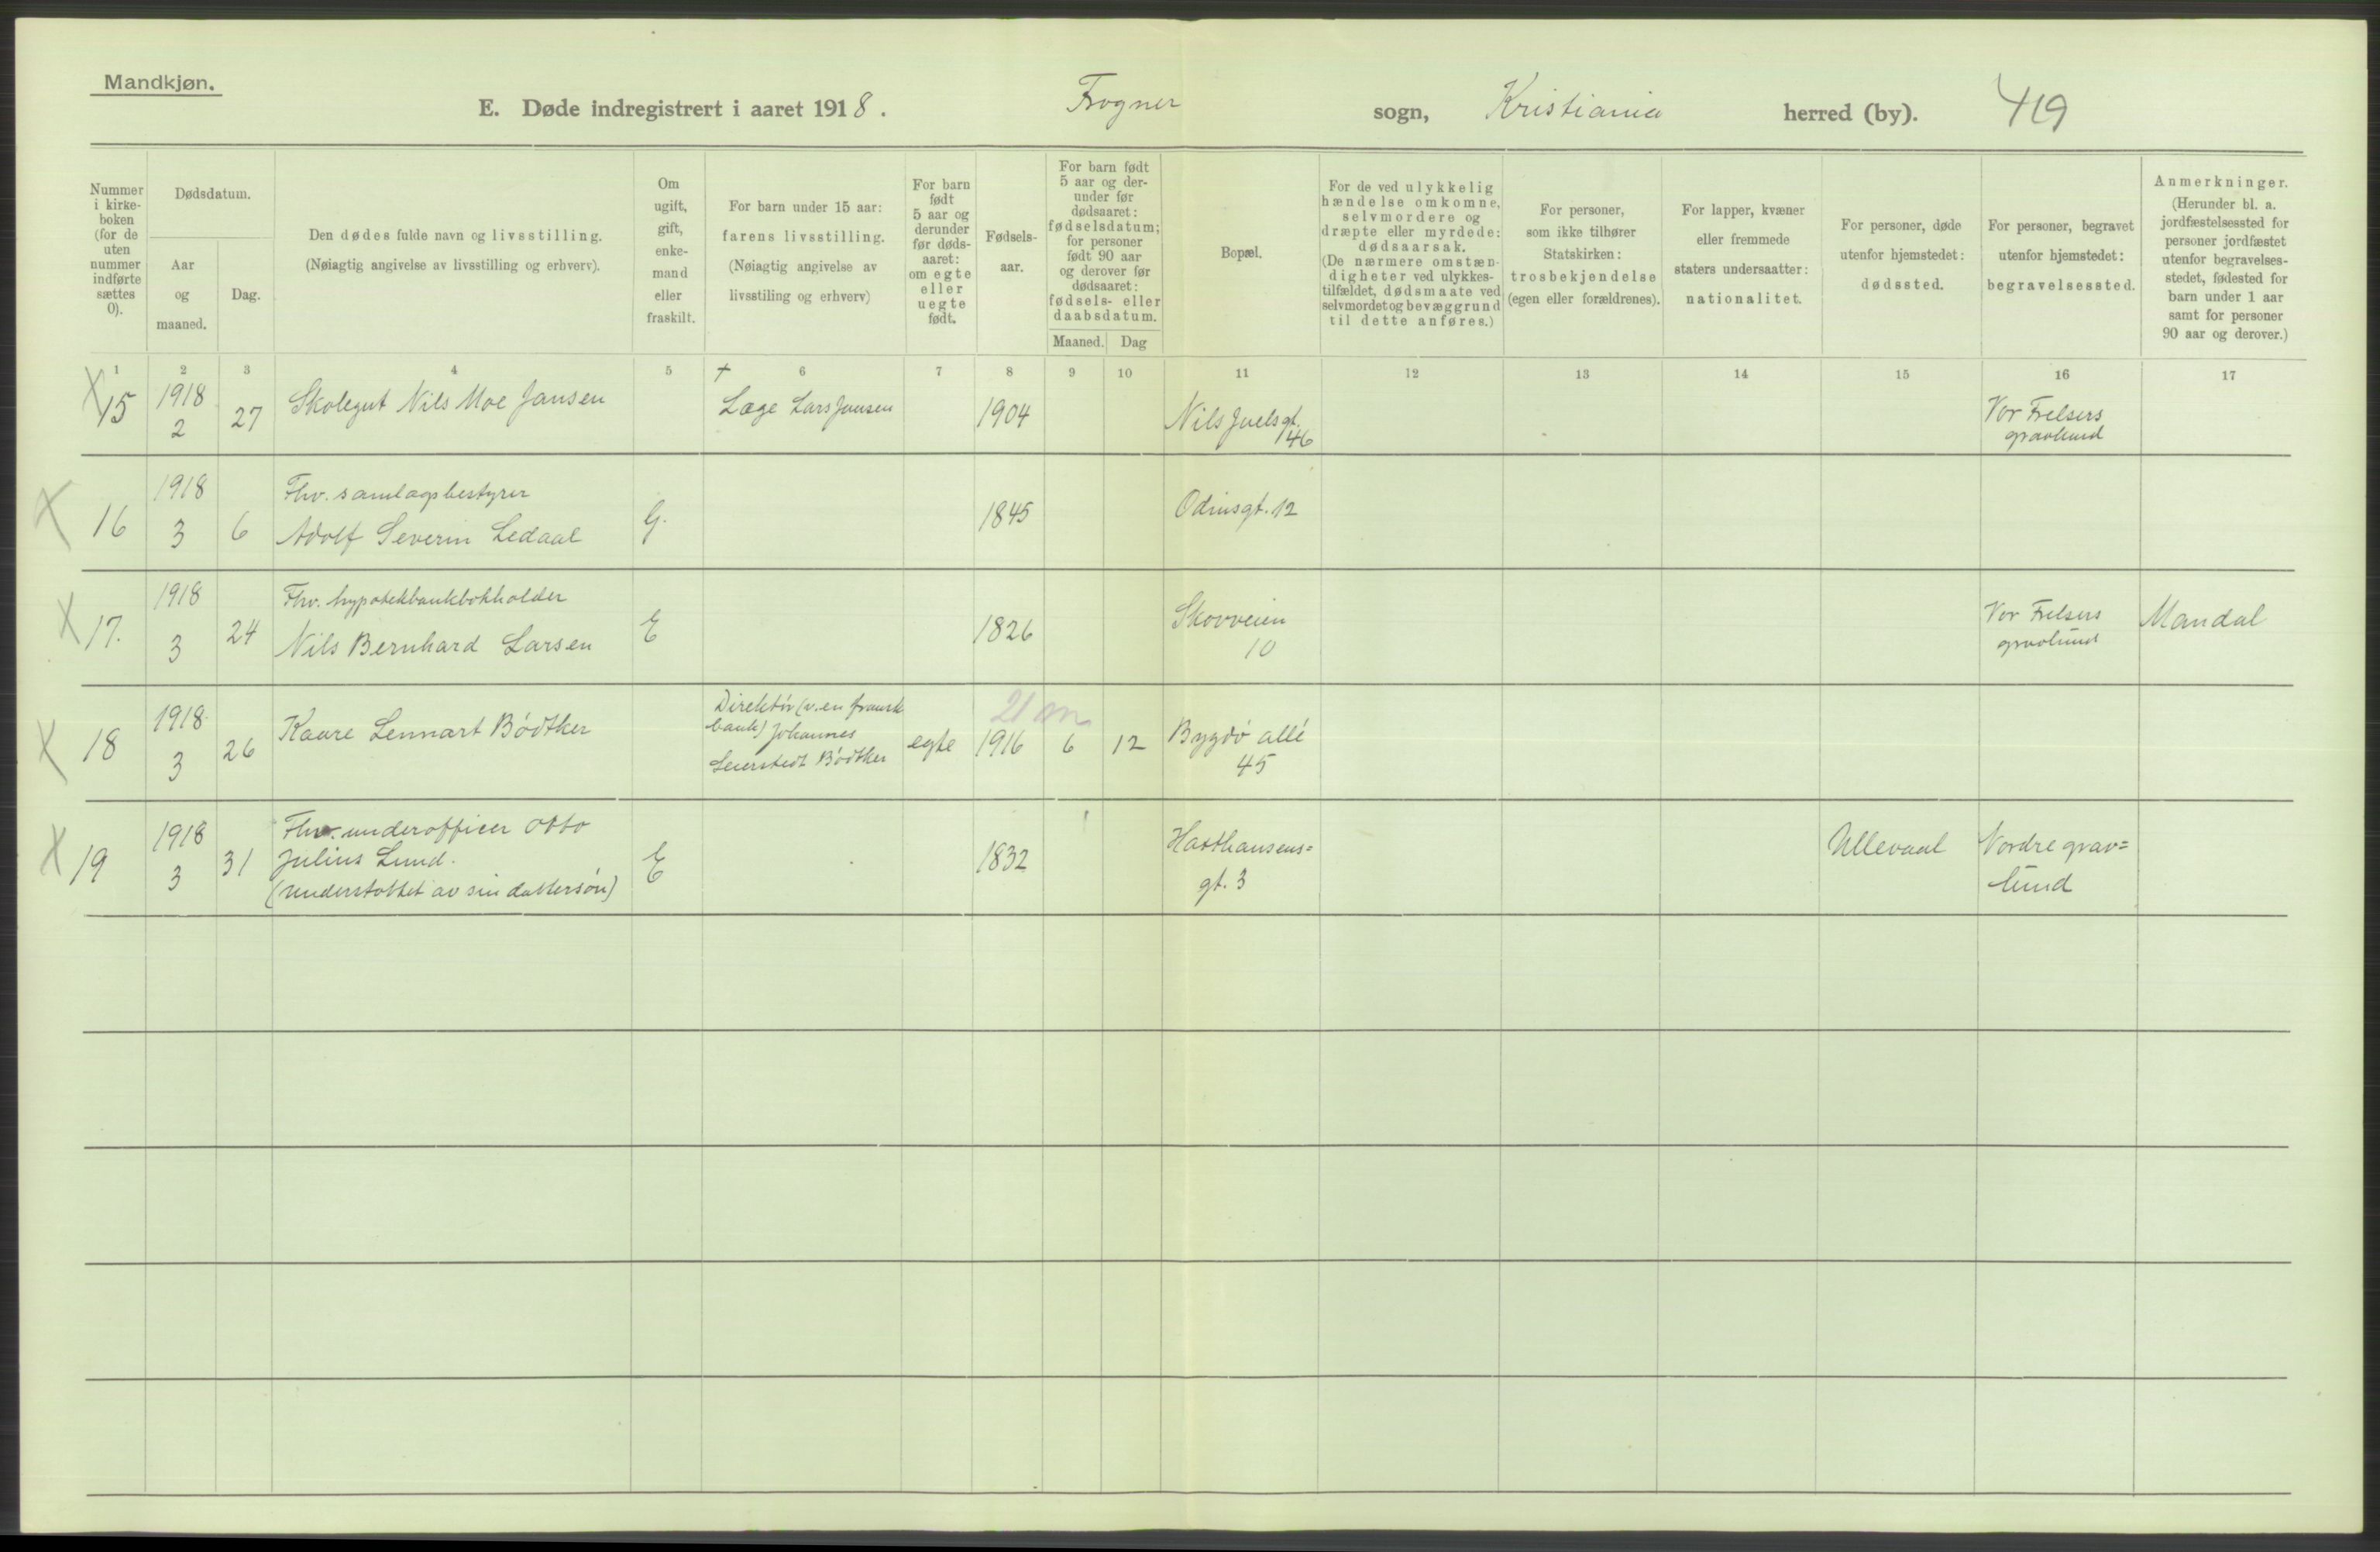 Mandkjøn.
E. Døde indregistrert i aaret 1918. Frogner sogn, Kristiania herred (by). 419
Nummer i kirke-boken (for de uten nummer indførte sættes 0).
Dødsdatum.
Aar og maaned.
Dag.
Den dødes fulde navn og livsstilling.
(Nøiagtig angivelse av livsstilling og erhverv).
Om ugift, gift, enke-mand eller fraskilt.
For barn under 15 aar:
farens livsstilling.
(Nøiagtig angivelse av
livsstiling og erhverv)
For barn født 5 aar og derunder før døds-aaret: om egte eller uegte født.
Fødsels-aar.
For barn født 5 aar og der-under før dødsaaret: fødselsdatum; for personer født 90 aar og derover før dødsaaret: fødsels- eller daabsdatum.
Maaned. Dag
Bopæl.
For de ved ulykkelig hændelse omkomne, selvmordere og dræpte eller myrdede: dødsaarsak. (De nærmere omstæn-digheter ved ulykkes-tilfældet, dødsmaate ved selvmordet og bevæggrund til dette anføres.)
For personer, som ikke tilhører Statskirken: trosbekjendelse (egen eller forældrenes).
For lapper, kvæner eller fremmede staters undersaatter: nationalitet.
For personer, døde utenfor hjemstedet: dødssted.
For personer, begravet utenfor hjemstedet: begravelsessted.
Anmerkninger. (Herunder bl. a. jordfæstelsessted for personer jordfæstet utenfor begravelses-stedet, fødested for barn under 1 aar samt for personer 90 aar og derover.)
1 2 3 4 5 6 7 8 9 10 11 12 13 14 15 16 17
X 15 1918 2 27 Skolegut Nils Moe Jansen + Læge Lars Jansen 1904 Nils Juels gt. 46 Vor Frelsers gravlund
X 16 1918 3 6 Fhv. samlagsbestyrer
Adolf Severin Ledaal G. 1845 Odinsgt. 12
X 17. 1918 3 24 Fhv. hypotekbankbokholder
Nils Bernhard Larsen E 1826 Skovveien 10 Vor Frelsers gravlund Mandal
X 18 1918 3 26 Kaare Lennart Bödtker Direktör (v. en fransk
bank) Johannes
Leierstedt Bödtker egte 21 m 1916 6 12 Bygdö allé 45
X 19 1918 3 31 Fhv. underofficer Otto
Julius Lund.
(understöttet av sin dattersön) E 1832 Haxthausens=
gt. 3 Ullevaal Nordre grav=
lund